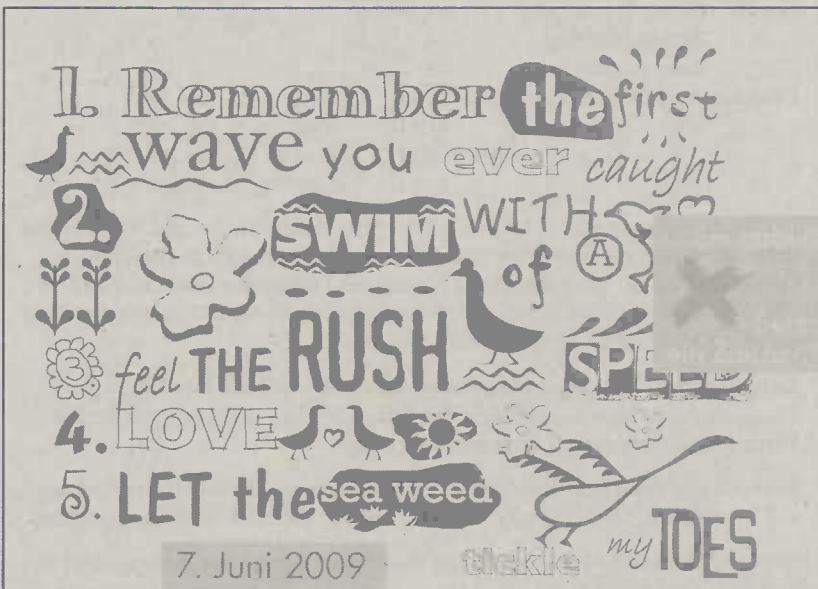 1. Remember the first
wave you ever caught
2. SWIM WITH A
of
3 feel THE RUSH SPEED
4. LOVE
5. LET the sea weed
tickle my TOES
7. Juni 2009